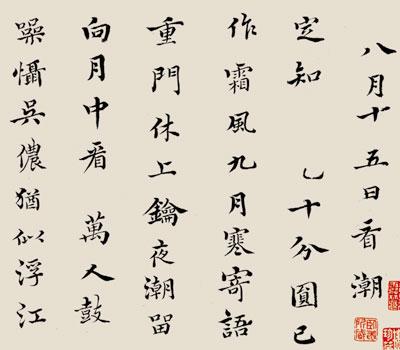 八月十五日看潮
定知 乙十分圓已
作霜風九月寒寄語
重門休上鑰夜潮留
向月中看 萬人鼓
噪懾吳儂猶似浮江